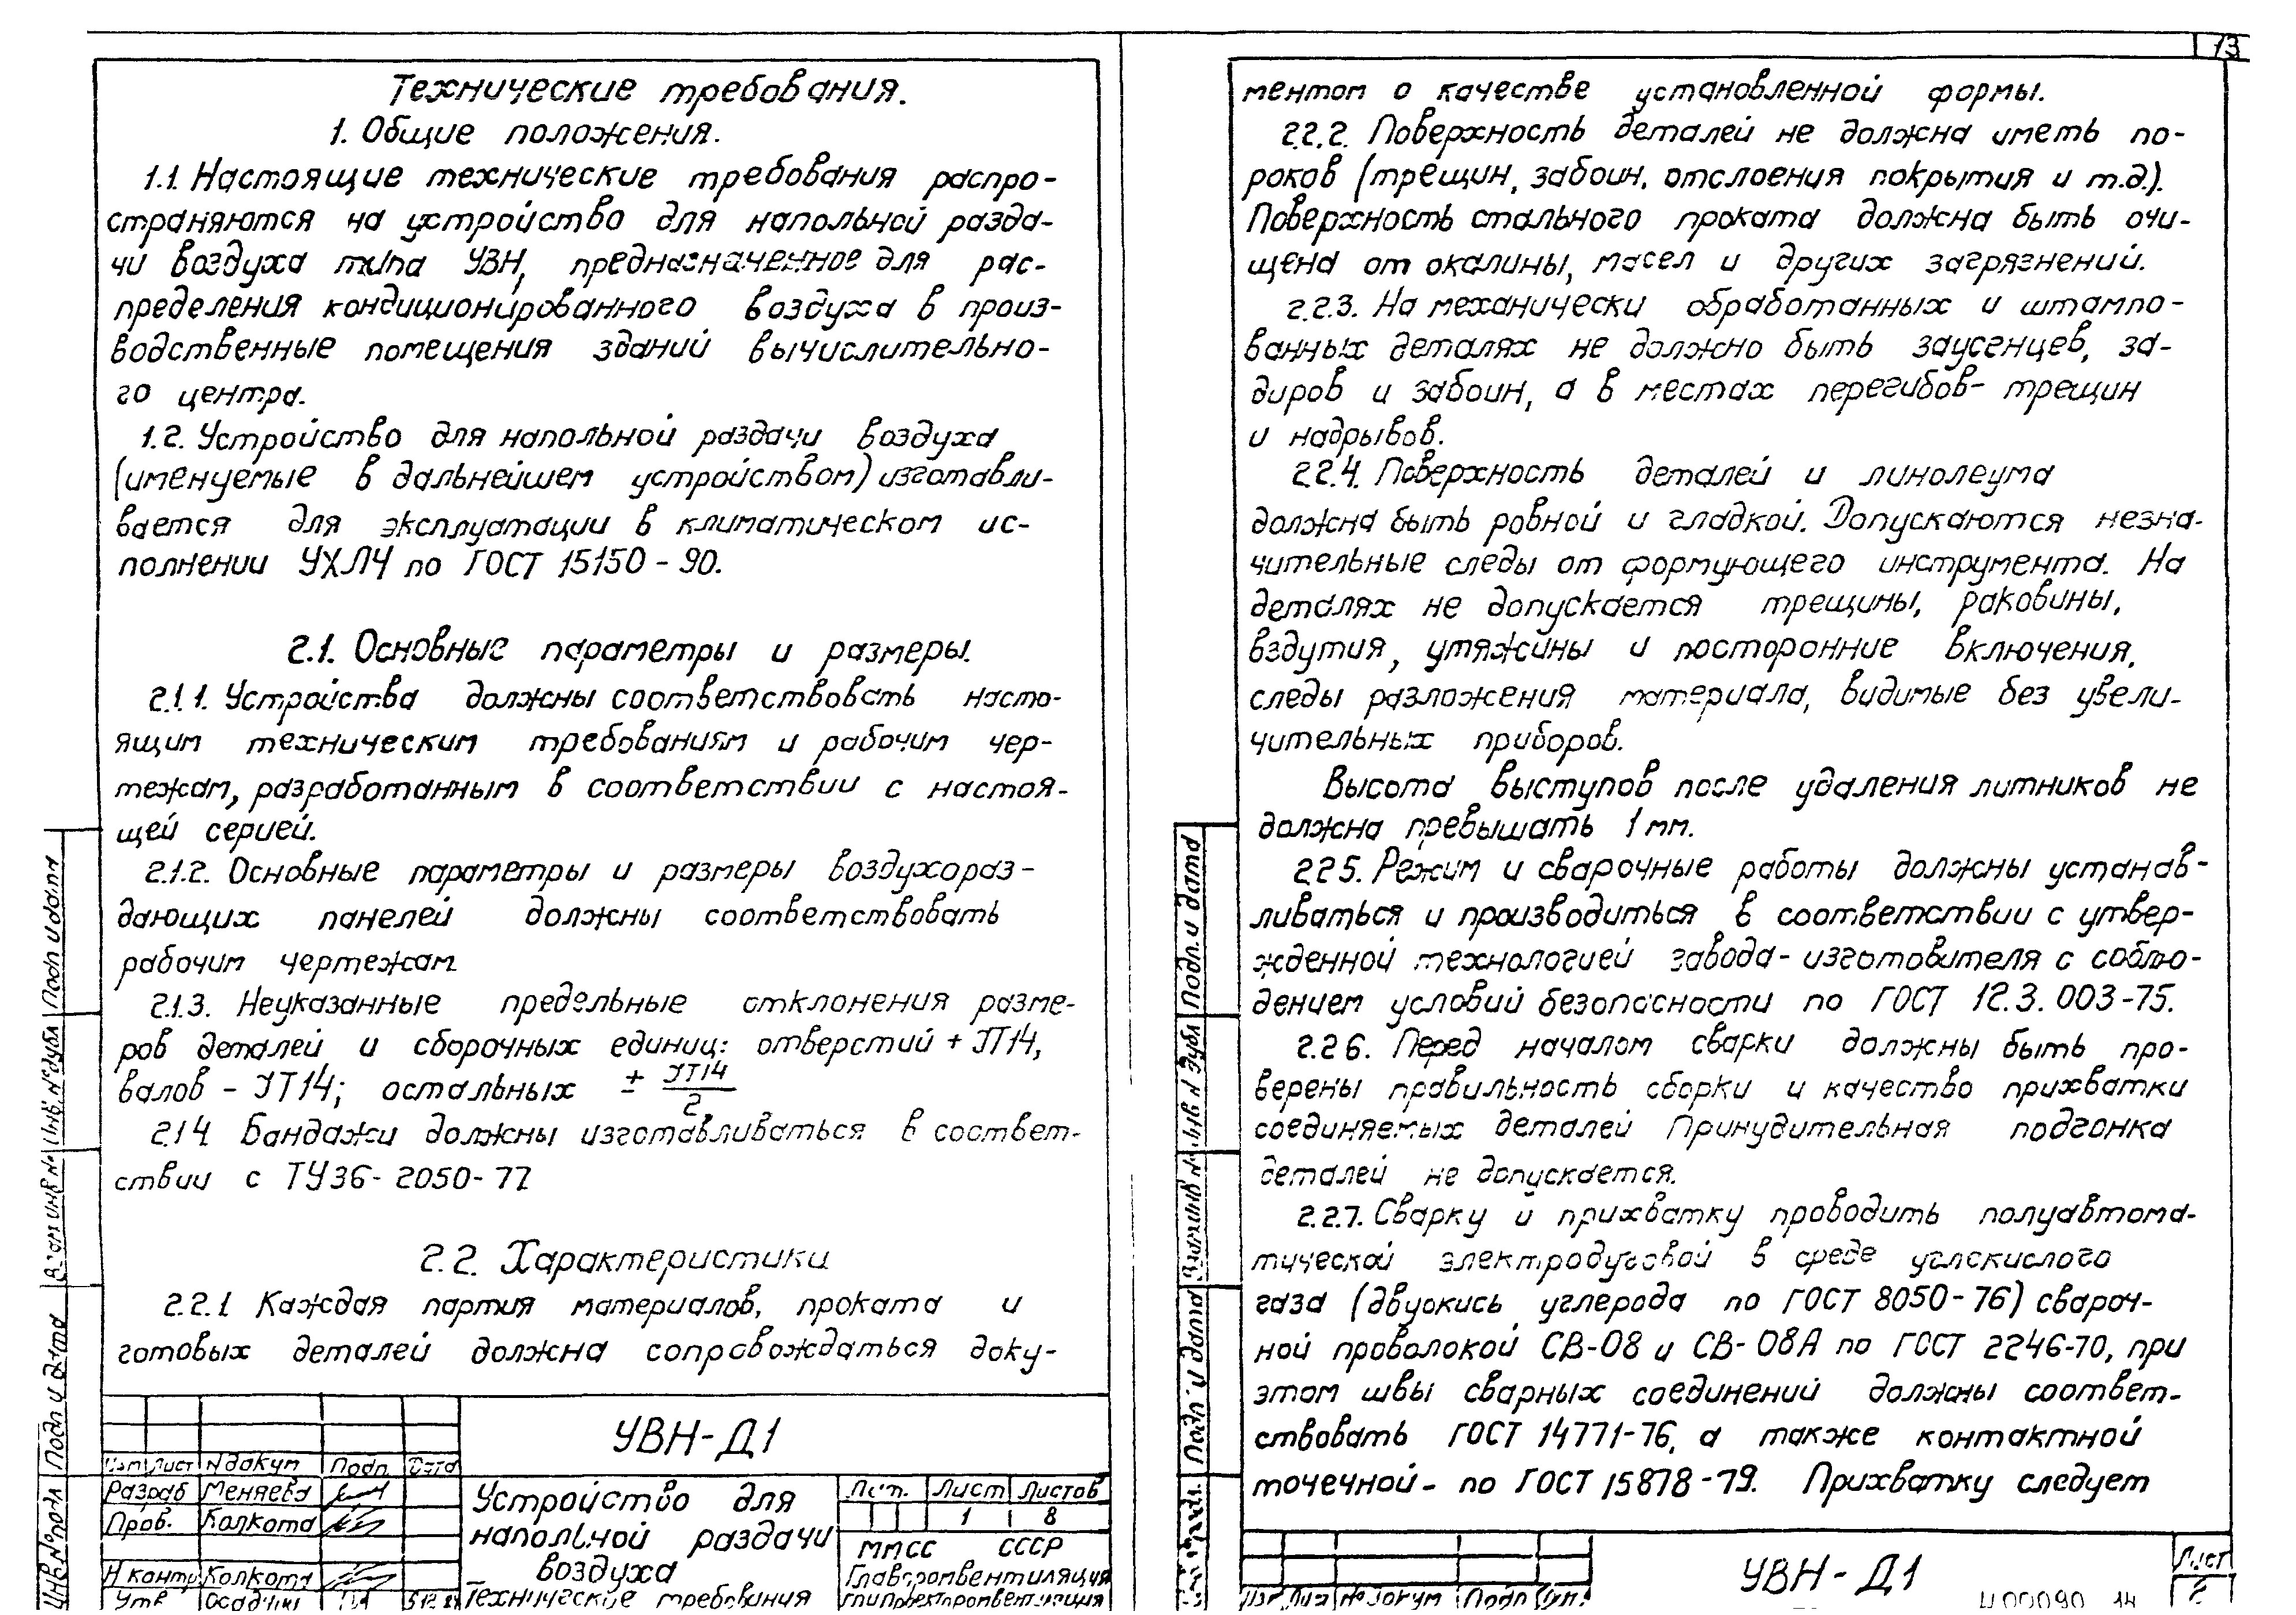 13
Технические требования.
1. Общие положения.
1.1. Настоящие технические требования распро-
страняются на устройство для напольной разда-
чи воздуха типа УВН, предназначенное для рас-
пределения кондиционированного воздуха в произ-
водственные помещения зданий вычислительно-
го центра.
1.2. Устройство для напольной раздачи воздуха
(именуемые в дальнейшем устройством) изготавли-
вается для эксплуатации в климатическом ис-
полнении УХЛ4 по ГОСТ 15150-90.
2.1. Основные параметры и размеры.
2.1.1. Устройства должны соответствовать насто-
ящим техническим требованиям и рабочим чер-
тежам, разработанным в соответствии с настоя-
щей серией.
2.1.2. Основные параметры и размеры воздухораз-
дающих панелей должны соответствовать
рабочим чертежам
2.1.3. Неуказанные предельные отклонения разме-
ров деталей и сборочных единиц: отверстий + JT14,
валов - JT14; остальных ± JT14/2.
2.1.4 Бандажи должны изготавливаться в соответ-
ствии с ТУ36-2050-77
2.2. Характеристики
2.2.1 Каждая партия материалов, проката и
готовых деталей должна сопровождаться доку-
ментом о качестве установленной формы.
2.2.2. Поверхность деталей не должна иметь по-
роков (трещин, забоин, отслоения покрытия и т.д.).
Поверхность стального проката должна быть очи-
щена от окалины, масел и других загрязнений.
2.2.3. На механически обработанных и штампо-
ванных деталях не должно быть заусенцев, за-
диров и забоин, а в местах перегибов- трещин
и надрывов.
2.2.4. Поверхность деталей и линолеума
должна быть ровной и гладкой. Допускаются незна-
чительные следы от формующего инструмента. На
деталях не допускается трещины, раковины,
вздутия, утяжины и посторонние включения,
следы разложения материала, видимые без увели-
чительных приборов.
Высота выступов после удаления литников не
должна превышать 1 мм.
2.2.5. Режим и сварочные работы должны устанав-
ливаться и производиться в соответствии с утвер-
жденной технологией завода-изготовителя с соблю-
дением условий безопасности по ГОСТ 12.3.003-75.
2.2.6. Перед началом сварки должны быть про-
верены правильность сборки и качество прихватки
соединяемых деталей Принудительная подгонка
деталей не допускается.
2.2.7. Сварку и прихватку проводить полуавтома-
тической электродуговой в среде углекислого
газа (двуокись углерода по ГОСТ 8050-76) свароч-
ной проволокой СВ-08 и СВ-08А по ГОСТ 2246-70, при
этом швы сварных соединений должны соответ-
ствовать ГОСТ 14771-76, а также контактной
точечной- по ГОСТ 15878-79. Прихватку следует
УВН-Д1
Изм Лист N докум Подп. Дата
Разраб Меняева
Пров. Колкота
Н контр Колкота
Утв
Устройство для
напольной раздачи
воздуха
Технические требования
Лит. Лист Листов
1 8
ММСС СССР
Главпромвентиляция
Гипроектпромвентиляция
Подп и дата
Инв. № дубл
Взам инв №
Подп и дата
Инв № подл
Подп. и дата
Инв № дубл
Взам инв №
Подп и дата
УВН-Д1
Лист
2
Изм Лист № докум Подп
Ц00090 14